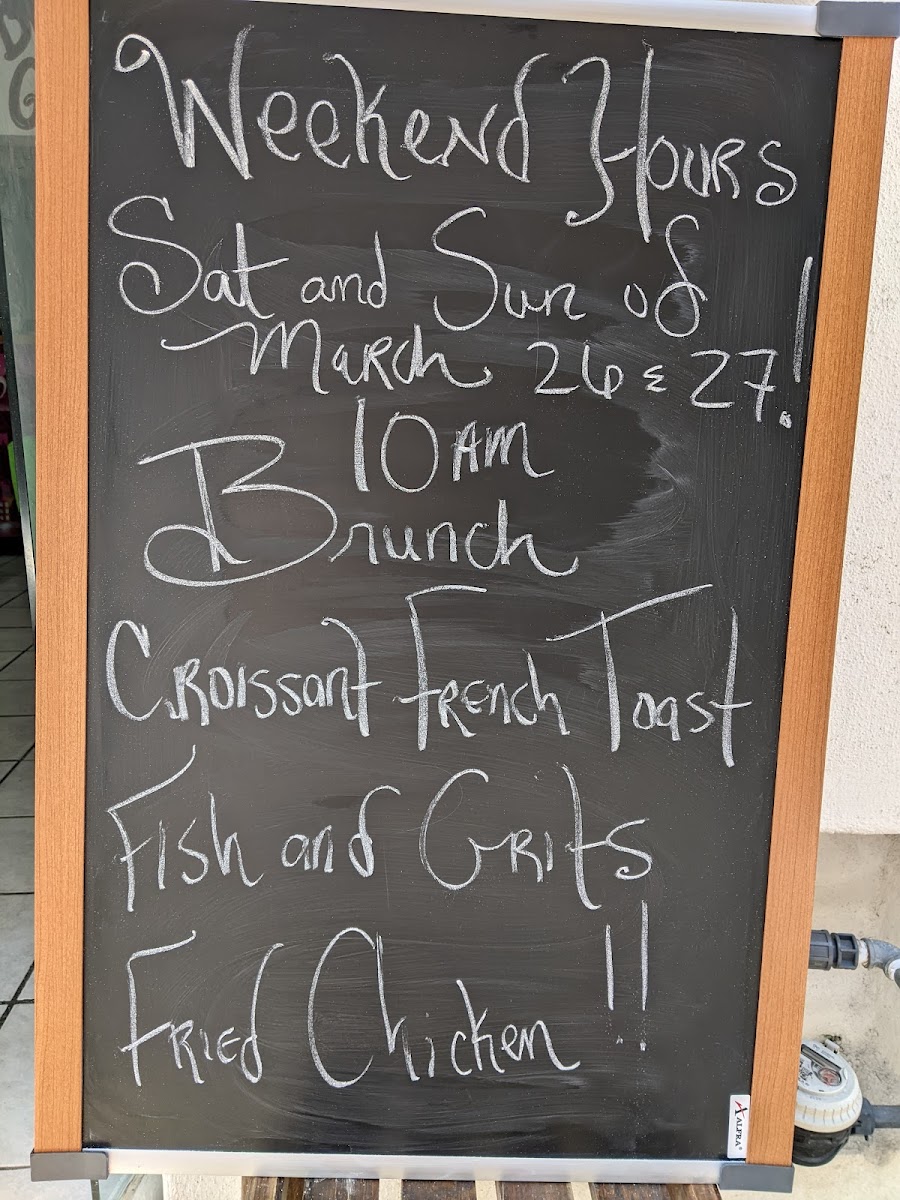 Weekend Hours
Sat and Sun of
March 26 & 27!
10 AM
Brunch
Croissant French Toast
Fish and Grits
Fried Chicken !!
ALFRA